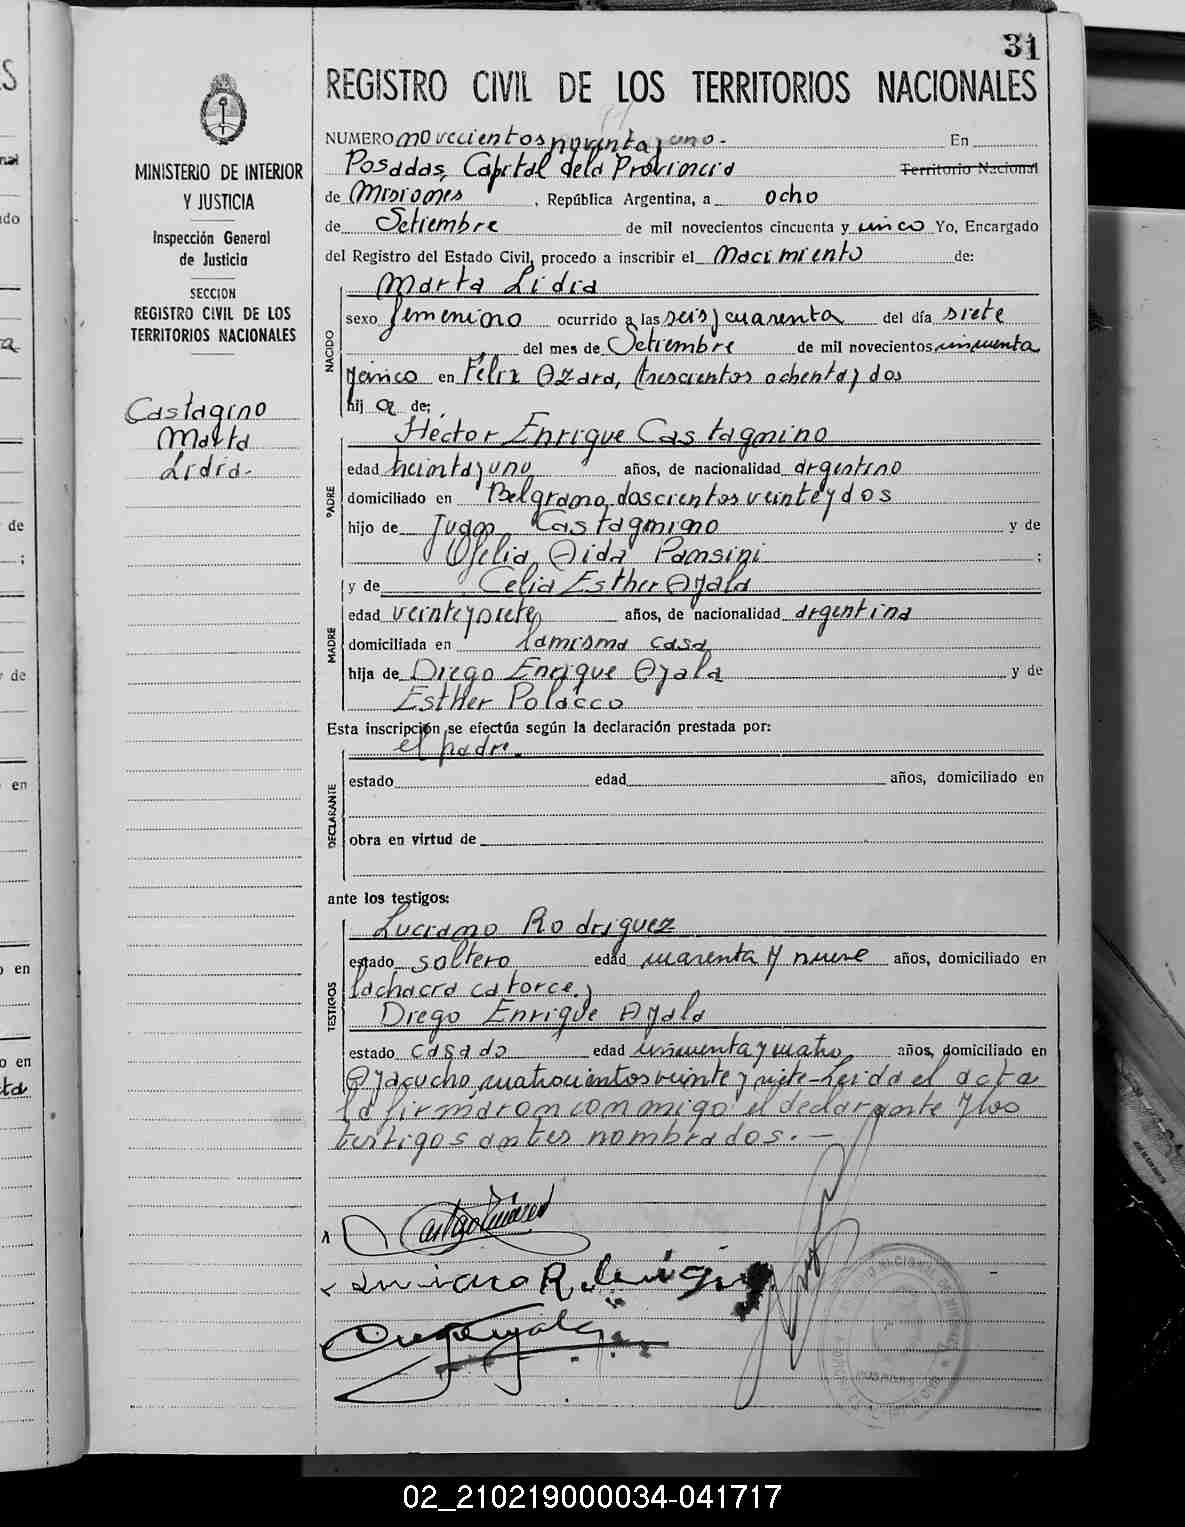 31
REGISTRO CIVIL DE LOS TERRITORIOS NACIONALES
MINISTERIO DE INTERIOR
Y JUSTICIA
Inspección General
de Justicia
SECCION
REGISTRO CIVIL DE LOS
TERRITORIOS NACIONALES
Castagino
Marta
Lidia.
NUMERO novecientos noventa y uno.- En
Posadas, Capital de la Provincia Territorio Nacional
de Misiones, República Argentina, a ocho
de Setiembre de mil novecientos cincuenta y cinco Yo, Encargado
del Registro del Estado Civil, procedo a inscribir el Nacimiento de:
NACIDO
Marta Lidia
sexo femenino ocurrido a las seis y cuarenta del día siete
del mes de Setiembre de mil novecientos cincuenta
y cinco en Félix Azara, trescientos ochenta y dos
hij a de:
PADRE
Héctor Enrique Castagnino
edad treinta y uno años, de nacionalidad argentino
domiciliado en Belgrano, doscientos veinte y dos
hijo de Juan Castagnino y de
Ofelia Aida Pansini ;
y de Celia Esther Ayala
MADRE
edad veinte y siete años, de nacionalidad argentina
domiciliada en la misma casa
hija de Diego Enrique Ayala y de
Esther Polacco
Esta inscripción se efectúa según la declaración prestada por:
el padre.
DECLARANTE
estado edad años, domiciliado en
obra en virtud de
ante los testigos:
TESTIGOS
Luciano Rodriguez
estado soltero edad cuarenta y nueve años, domiciliado en
la chacra catorce y
Diego Enrique Ayala
estado casado edad cincuenta y cuatro años, domiciliado en
Ayacucho, cuatrocientos veinte y siete-Leida el acta
la firmaron conmigo el declarante y los
testigos antes nombrados.-
02_210219000034-041717